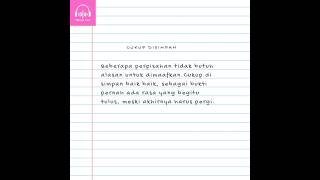 CUKUP DISIMPAN
Beberapa perpisahan tidak butuh
alasan untuk dimaafkan. Cukup di
simpan baik baik, sebagai bukti
pernah ada rasa yang begitu
tulus, meski akhirnya harus pergi.